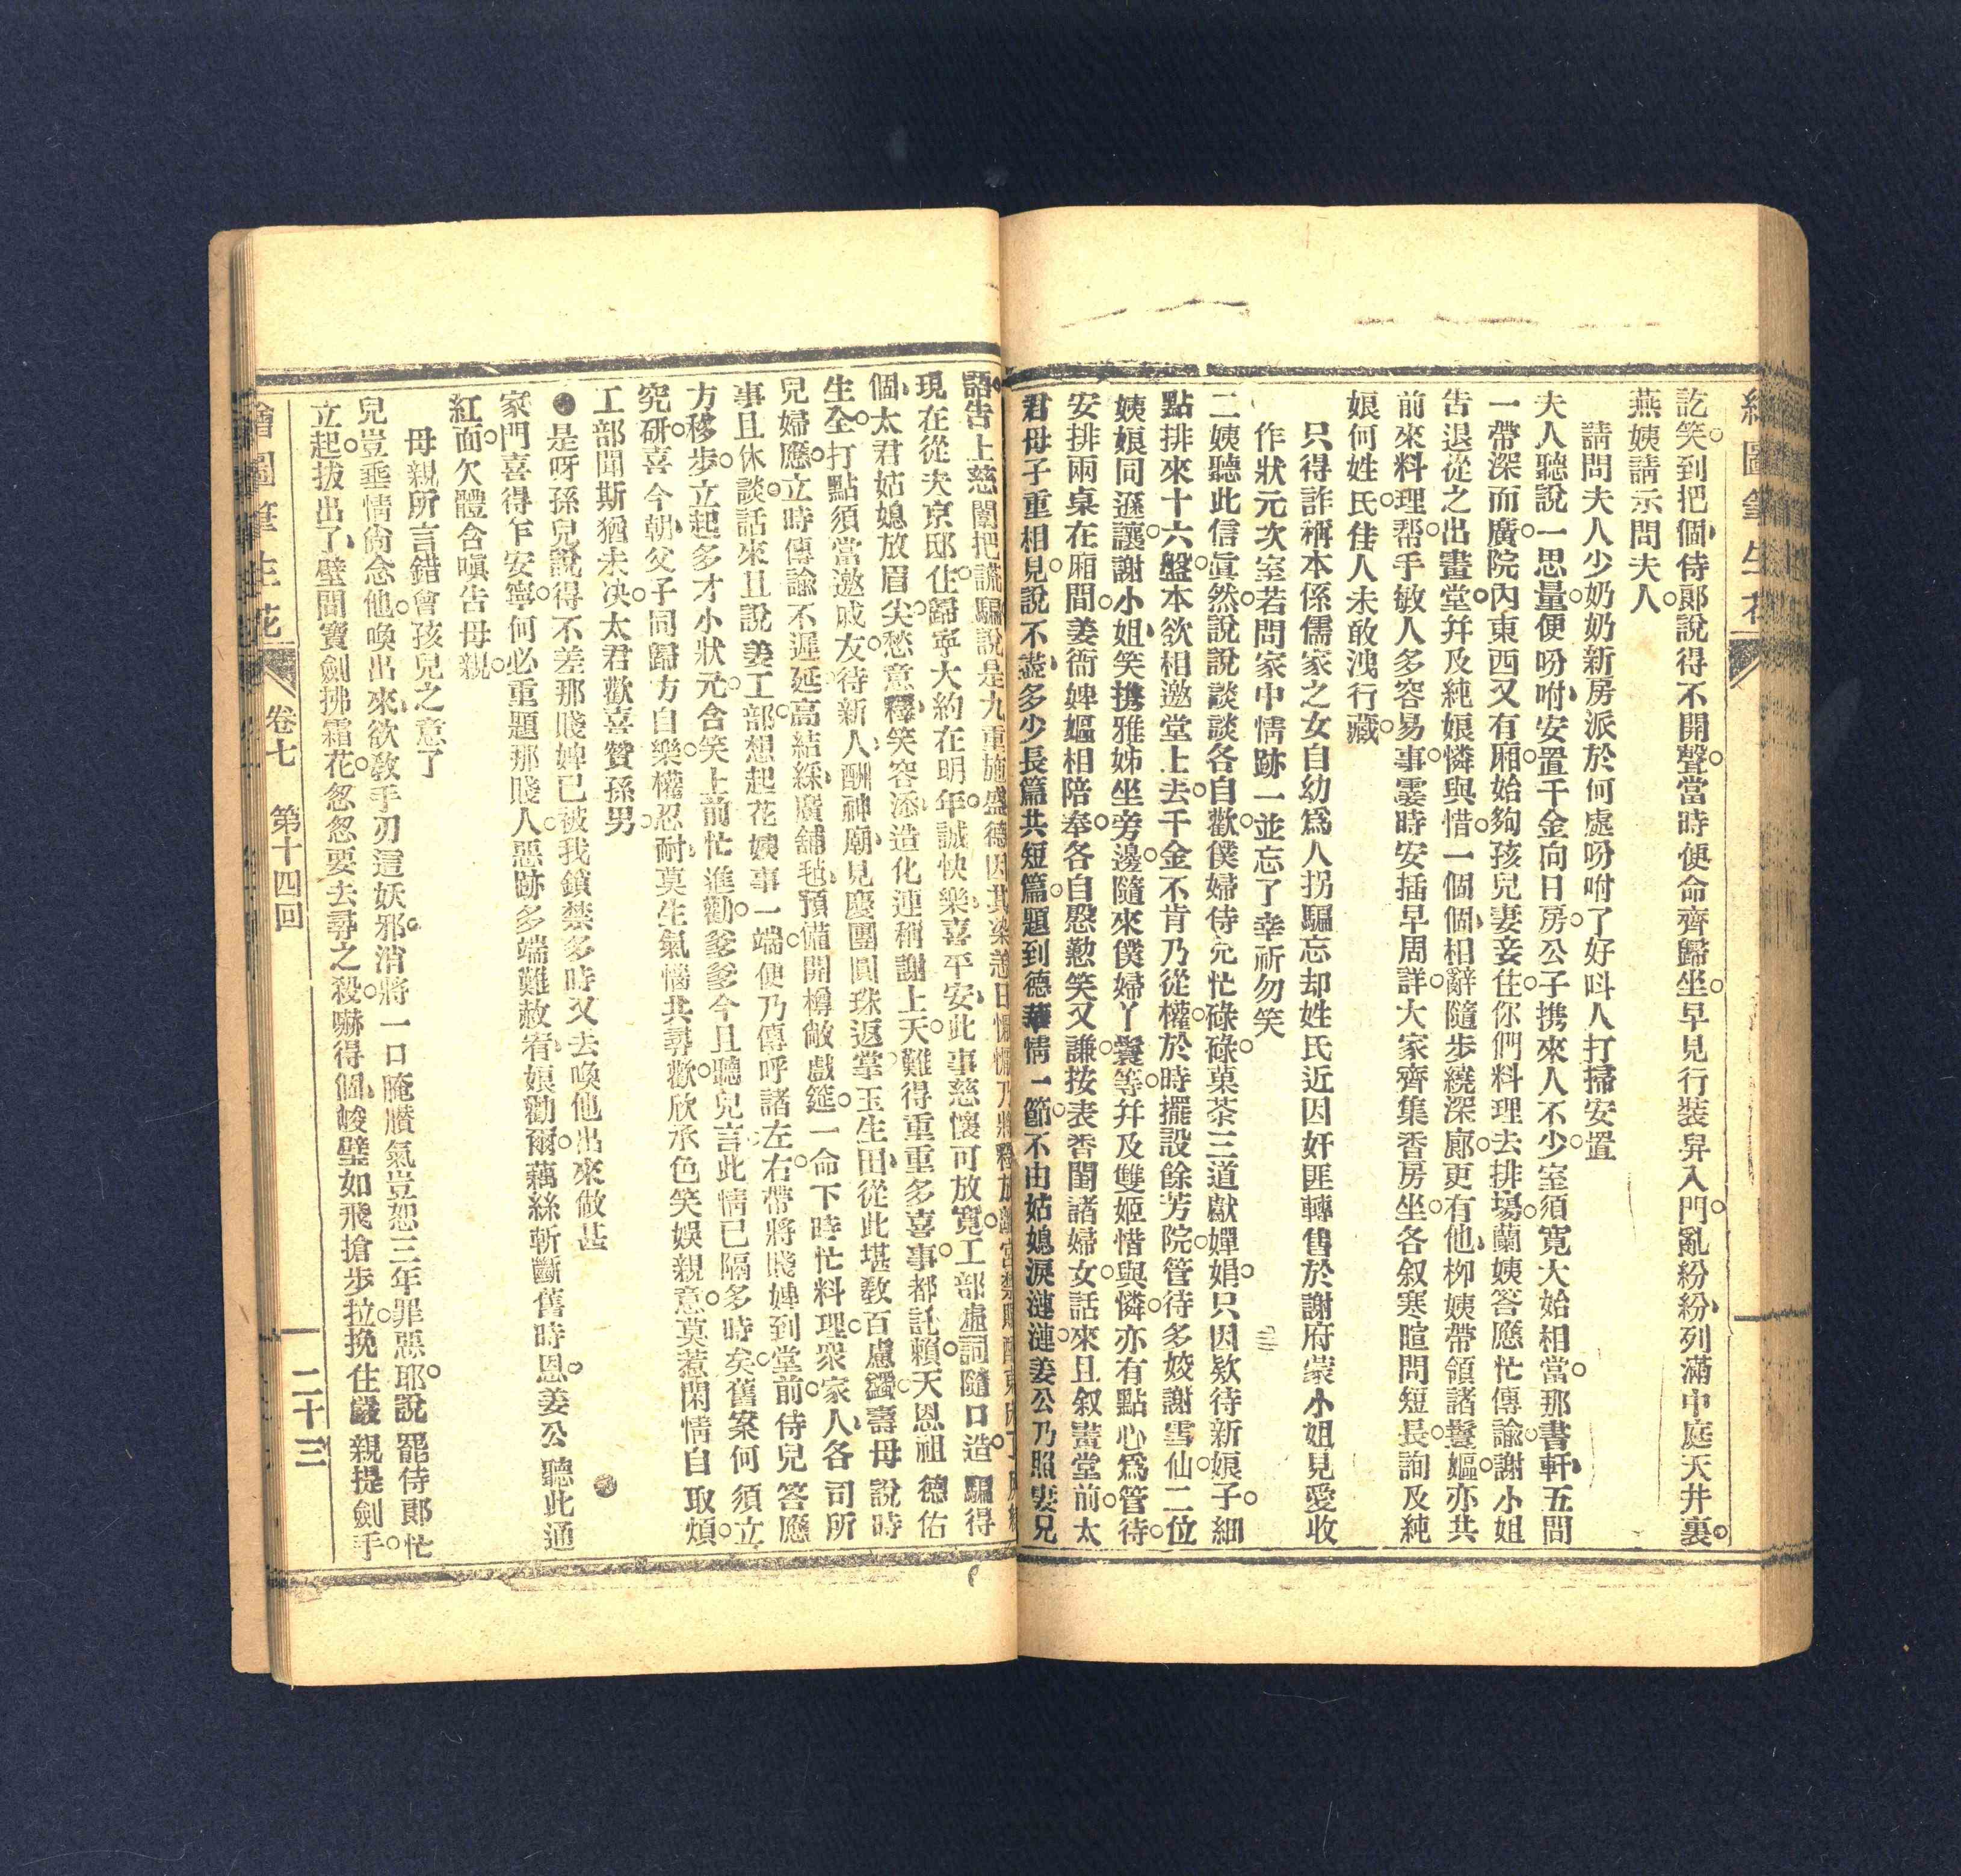 繪圖筆生花
訖笑○到把個、侍郎說得不開聲○當時便命齊歸坐○早見行裝舁入門○亂紛紛、列滿中庭天井裏○
燕姨請示問夫人○
請問夫人少奶奶新房派於何處吩咐了好呌人打掃安置
夫人聽說一思量○便吩咐、安置千金向日房○公子携來人不少○室須寬大始相當○那書軒、五間
一帶深而廣○院內東西又有廂○始夠孩兒妻妾住○你們料理去排塲○蘭姨答應忙傳諭○謝小姐
告退從之出畫堂○并及純娘憐與惜○一個個、相辭隨步繞深廊○更有他、栁姨帶領諸鬟嫗○亦共
前來料理帮○手敏人多容易事○霎時安插早周詳○大家齊集香房坐○各叙寒暄問短長○詢及純
娘何姓氏○佳人未敢洩行藏○
只得詐稱本係儒家之女自幼爲人拐騙忘却姓氏近因奸匪轉售於謝府蒙小姐見愛收
作狀元次室若問家中情跡一並忘了幸祈勿笑
二姨聽此信眞然○說說談談各自歡○僕婦侍兒忙碌碌○菓茶三道獻嬋娟○只因欵待新娘子○細
點排來十六盤○本欲相邀堂上去○千金不肯乃從權○於時擺設餘芳院○管待多姣謝雪仙○二位
姨娘同遜讓○謝小姐、笑携雅姊坐旁邊○隨來僕婦丫鬟等○并及雙姬惜與憐○亦有點心爲管待○
安排兩桌在廂間○姜衙婢嫗相陪奉○各自慇懃笑又謙○按表香閨諸婦女○話來且叙畫堂前○太
君母子重相見○說不盡、多少長篇共短篇○題到德華情一節○不由姑媳淚漣漣○姜公乃照婁兄
語○告上慈闈把謊騙○說是九重施盛德○
現在從夫京邸住○歸寧大約在明年○誠快樂、喜平安、此事慈懷可放寬○工部虛詞隨口造○騙得
個、太君姑媳放眉尖○愁意釋、笑容添、造化連稱謝上天○難得重重多喜事○都託賴、天恩祖德佑
生全○打點須當邀戚友○待新人、酬神廟、見慶團圓珠返掌○玉生田、從此堪敎百慮蠲○壽母說時
兒婦應○立時傳諭不遲延○高結綵、廣舖毡、預備開樽敞戲筵○一命下時忙料理○衆家人、各司所
事且休談○話來且說姜工部○想起花姨事一端○便乃傳呼諸左右○帶將賤婢到堂前○侍兒答應
方移步○立起多才小狀元○含笑上前忙進勸○爹爹今且聽兒言○此情已隔多時矣○舊案何須立
究研○喜今朝、父子同歸方自樂○權忍耐、莫生氣惱共尋歡○欣承色笑娛親意○莫惹閑情自取煩○
工部聞斯猶未决○太君歡喜贊孫男○
●是呀孫兒說得不差那賤婢已被我鎖禁多時又去喚他出來做甚
家門喜得乍安寧○何必重題那賤人○惡跡多端難赦宥○娘勸爾、藕絲斬斷舊時恩○姜公聽此通
紅面○欠體含嗔告母親○
母親所言錯會孩兒之意了
兒豈垂情尙念他○喚出來、欲敎手刃這妖邪○消將一口腌臢氣○豈恕三年罪惡耶○說罷侍郞忙
立起○拔出了、壁間寶劍拂霜花○忽忽要去尋之殺○嚇得個、峻璧如飛搶步拉○挽住嚴親提劍手○
繪圖筆生花
卷七
第十四回
二十三